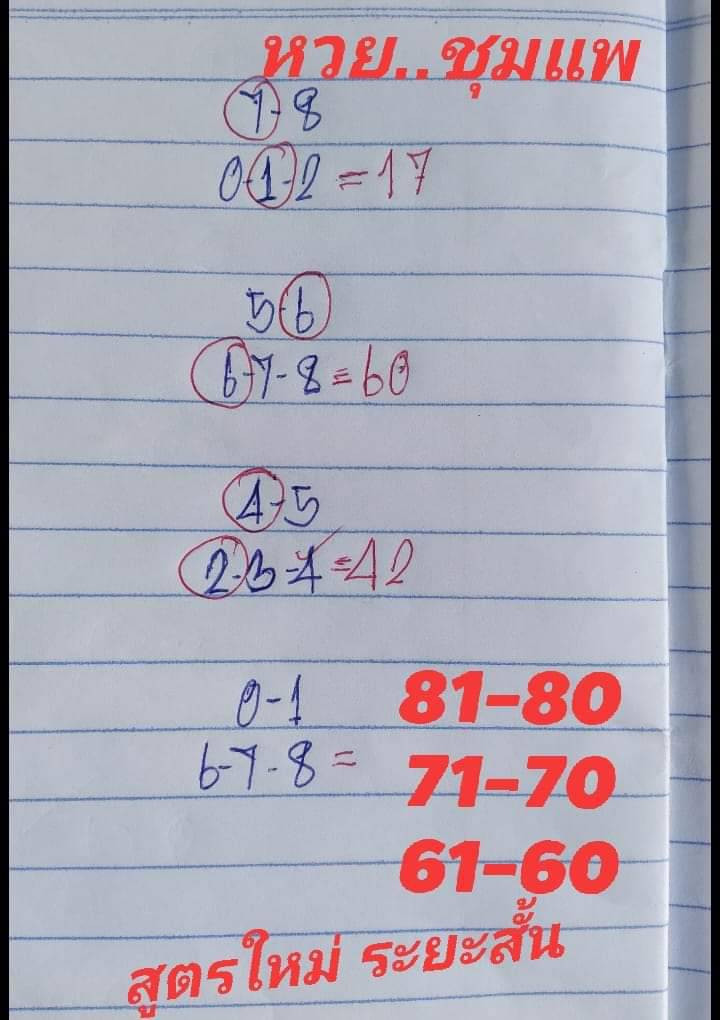 หวย..ชุมแพ
7-8
0-1-2 =17
5-6
6-7-8=60
4-5
2-3-4=42
0-1
6-7-8=
81-80
71-70
61-60
สูตรใหม่ ระยะสั้น